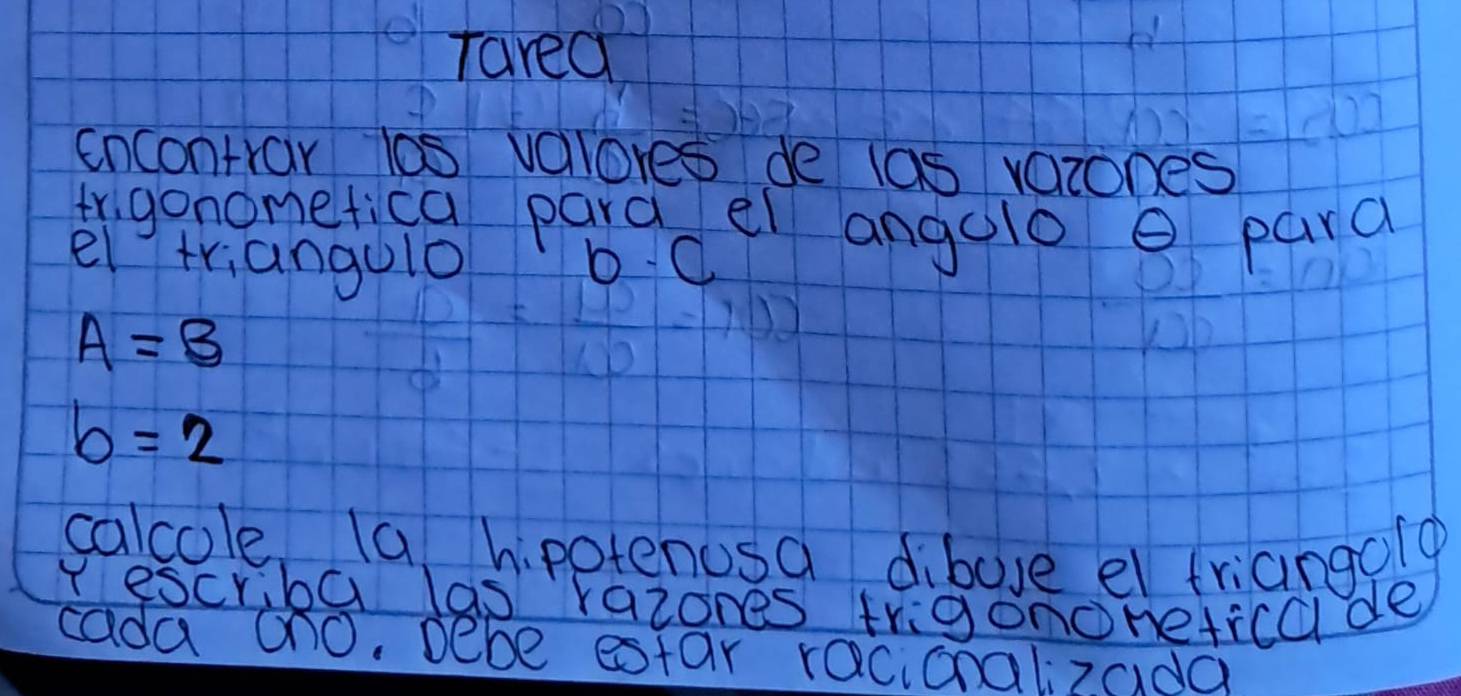 Tarea
Encontrar los valores de las razones
trigonometica para el angulo Θ para
el triangulo b·C
A = 3
b = 2
calcule la hipotenusa dibuje el triangulo
Y escriba las razones trigonometrica de
cada uno. Debe estar racionalizada